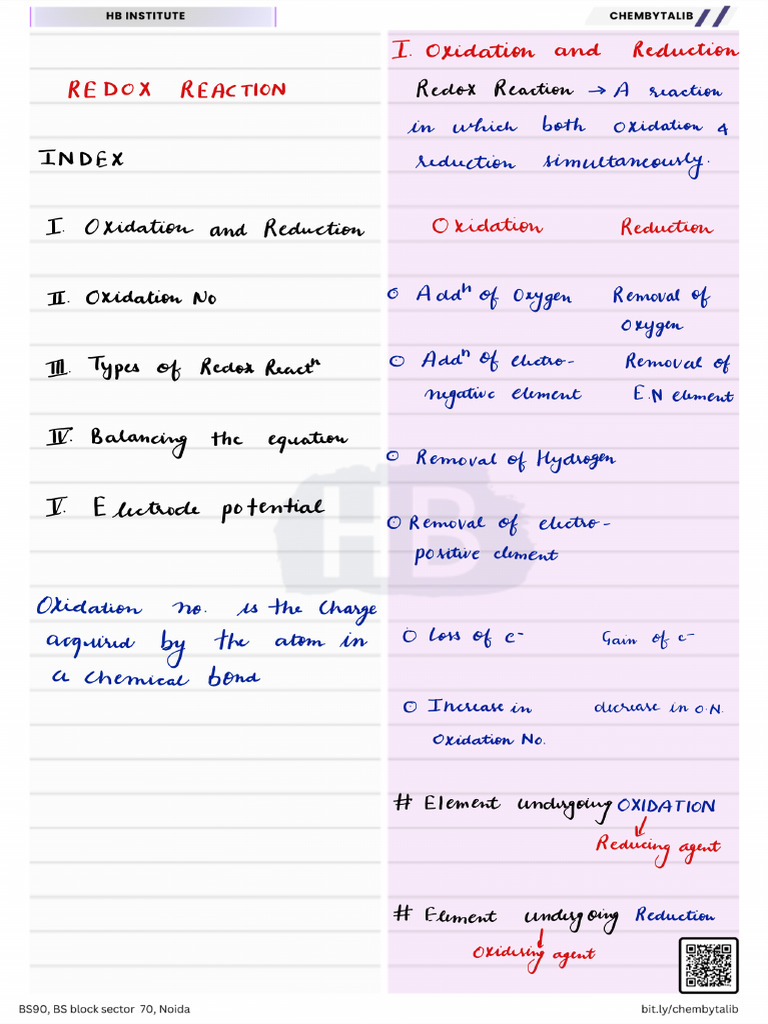 HB INSTITUTE
CHEMBYTALIB
REDOX REACTION
INDEX
I. Oxidation and Reduction
II. Oxidation No
III. Types of Redox Reactⁿ
IV. Balancing the equation
V. Electrode potential
Oxidation no. is the charge
acquired by the atom in
a chemical bond
I. Oxidation and Reduction
Redox Reaction → A reaction
in which both oxidation &
reduction simultaneously.
Oxidation Reduction
○ Addⁿ of Oxygen Removal of
Oxygen
○ Addⁿ of electro- Removal of
negative element E.N element
○ Removal of Hydrogen
○ Removal of electro-
positive element
○ Loss of e⁻ Gain of e⁻
○ Increase in decrease in O.N.
Oxidation No.
# Element undergoing OXIDATION
↓
Reducing agent
# Element undergoing Reduction
↓
Oxidising agent
HB
BS90, BS block sector 70, Noida
bit.ly/chembytalib